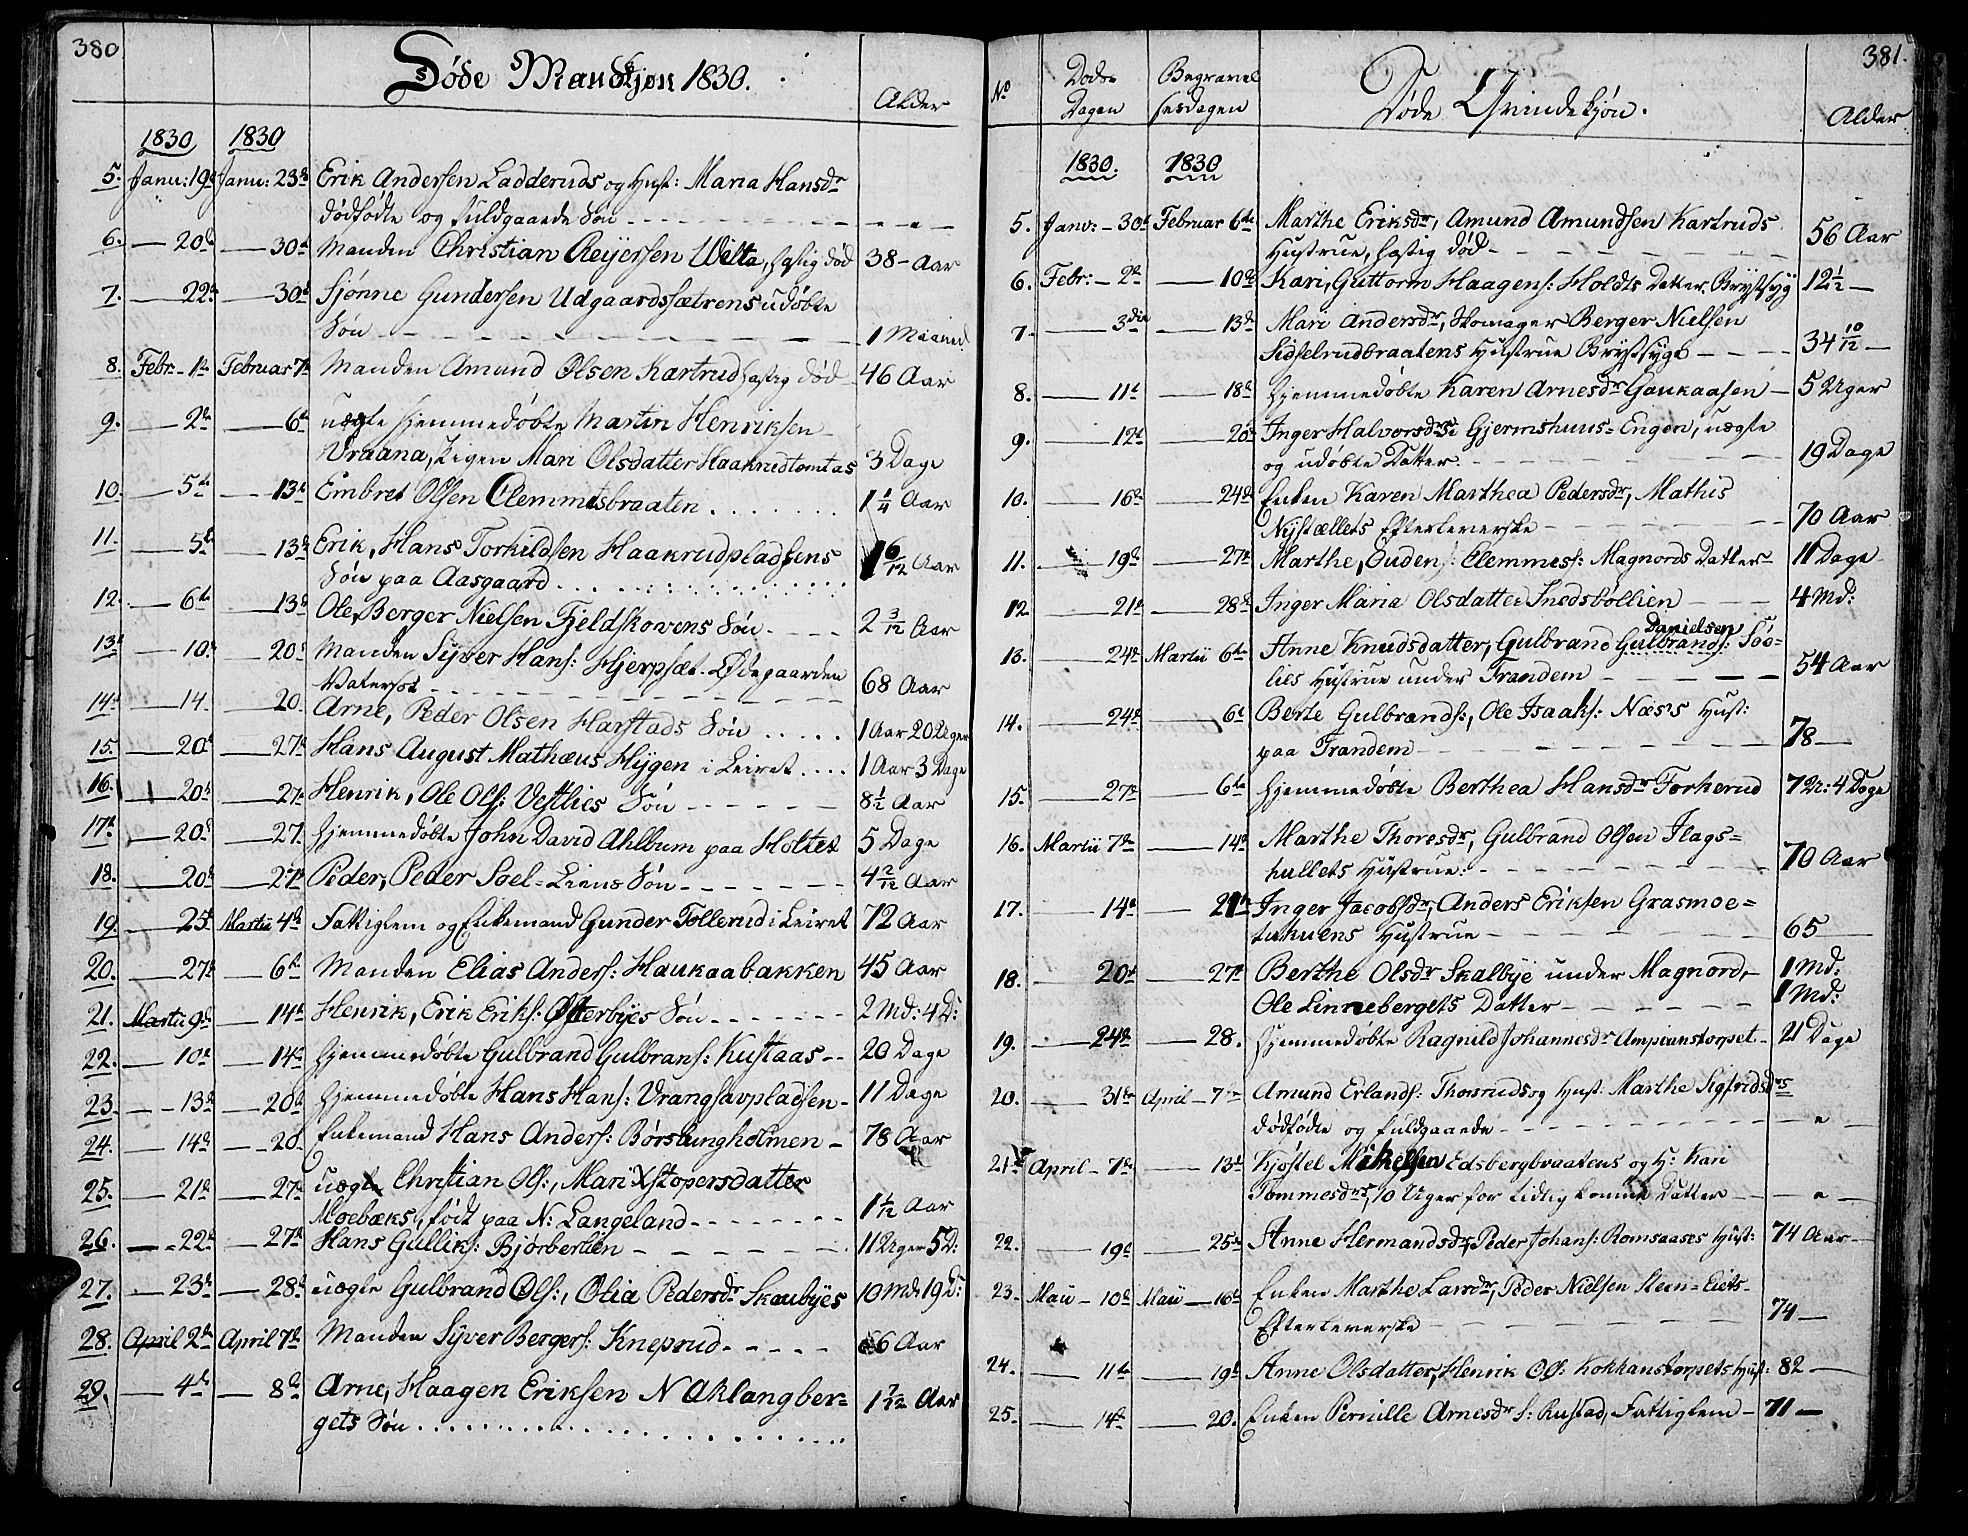 380
Døde Mandkjøn 1830.
Alder
1830 1830
5. Janu: 19d Janu: 23d Erik Andersen Ladderuds og Hust: Maria Hansdr
dødfødte og fuldgaaede Søn - - -
6. — 20d — 30d Manden Christian Reyersen Welta, hastig død 38 - Aar
7. — 22d — 30d Sjønne Gundersen Udgaardssætrens udøbte
Søn 1 Maaned
8. Febr. - 1te Februar 7d Manden Amund Olsen Kartrud hastig død 46 Aar
9. — 2de — 6te uægte hjemmedøbte Martin Henriksen
Vraana, Pigen Mari Olsdatter Haakrudtomtas 3 Dage
10. — 5te — 13d Embret Olsen Clemmetsbraaten 1 1/4 Aar
11. — 5te — 13d Erik, Hans Torkildsen Haakrudpladsens
Søn paa Aasgaard 1 6/12 Aar
12. — 6te — 13d Ole, Berger Nielsen Fjeldskovens Søn 2 3/12 Aar
13. — 10. — 20d Manden Syver Hans: Hjerpset-Ødegaarden
Vatersot 68 Aar
14. — 14 — 20. Arne, Peder Olsen Harstads Søn 1 Aar 20 Uger
15. — 20d — 27d Hans August Mathæus Hygen i Leiret 1 Aar 3 Dage
16. — 20d — 27d Henrik, Ole Ols: Vestlies Søn 8 1/2 Aar
17. — 20d — 27. hjemmedøbte John David Ahlbum paa Holtet 5 Dage
18. — 20d — 27d Peder, Peder Soel-Liens Søn 4 2/12 Aar
19. — 25d Martii 4d Fattiglem og Enkemand Gunder Tollerud i Leiret 72 Aar
20. — 27d — 6te Manden Elias Anders: Haukaabakken 45 Aar
21. Martii 9d — 14d Henrik, Erik Eriks: Østerbyes Søn 2 Md: 4 D:
22. — 10d — 14d hjemmedøbte Gulbrand Gulbrans: Kustaas 20 Dage
23. — 13d — 20d hjemmedøbte Hans Hans: Vrangsavpladsen 11 Dage
24. — 14d — 20. Enkemand Hans Anders: Børslungholmen 78 Aar
25. — 21d — 27d uægte Christian Ols:, Mari Xstopersdatter
Moebæks, født paa N: Langeland 1 1/12 Aar
26. — 22d — 27d Hans Gulliks: Bjørberlien 11 Uger 5 D:
27. — 23d — 28d uægte Gulbrand Ols:, Olia Pedersdr Skaubyes 10 Md: 19 D:
28. April 2de April 7d Manden Syver Bergers: Kneprud 66 Aar
29. — 4d — 8d Arne, Haagen Eriksen N Aklangber=
gets Søn 1 7/12 Aar
381.
No Døds Dagen Begravel sesdagen Døde Qvindekjøn. Alder
1830. 1830
5. Janv: - 30d Februar 6te Marthe Eriksdr, Amund Amundsen Kartruds
Hustrue, hastig død 56 Aar
6. Febr: - 2de — 10d Kari, Guttorm Haagens: Holdts Datter. Brystsyg 12 1/2 —
7. — 3die — 13d Mari Andersdr, Skomager Berger Nielsen
Sidselrudbraatens Hustrue Brystsyge 34 10/12 —
8. — 11d — 18d hjemmedøbte Karen Arnesdr Gaukaasen 5 Uger
9. — 12d — 20d Inger Halvorsdr i Gjermshuus-Engen, uægte
og udøbte Datter. 19 Dage
10. — 16d — 24d Enken Karen Marthea Pedersdr, Mathis
Nystællets Efterleverske 70 Aar
11. — 19d — 27d Marthe, Ouden: Clemmes: Magnords Datter 11 Dage
12 — 21d — 28d Inger Maria Olsdatter Snedsbøllien 4 Md:
Danielsen
13. — 24d Martii 6te Anne Knudsdatter, Gulbrand Gulbrands: Søe=
lies Hustrue under Trandem 54 Aar
14. — 24d — 6d Berte Gulbrands:, Ole Isaaks: Næs's Hust:
paa Trandem 78 —
15. — 27d — 6te hjemmedøbte Berthea Hansdr Torkerud 7 U: 4 Dage
16. Martii 7de — 14d Marthe Thoresdr, Gulbrand Olsen Flags=
hullets Hustrue: 70 Aar
17. — 14d — 21d Inger Jacobsdr, Anders Eriksen Grasmoe=
tukuens Hustrue 65 —
18. — 20d — 27d Berthe Olsdr Skalbye under Magnord, 1 Md:
Ole Linnebergets Datter 1 Md:
19. — 24d — 28. hjemmedøbte Ragnild Johannesdr Ampianstorpet 21 Dage
20. — 31te April - 7de Amund Erlands: Thorsruds og Hust. Marthe Sigfridsdrs
dødfødte og fuldgaaede
21. April - 7de — 13d Kjøstel Mikelsen Edsbergbraatens og H: Kari
Tommesdrs, 10 Uger for tidlig komne Datter
22. — 19d — 25de Anne Hermandsdr, Peder Johans: Romsaases Hust: 74 Aar
23. Maii - 10d Maii — 16d Enken Marthe Larsdr, Peder Nielsen Steen-Eiets
Efterleverske 74 —
24. — 11te — 19d Anne Olsdatter, Henrik Ols: Kokkanstorpets Hust: 82 —
25. — 14d — 20. Enken Pernille Arnesdr S: Rustad, Fattiglem 71 —